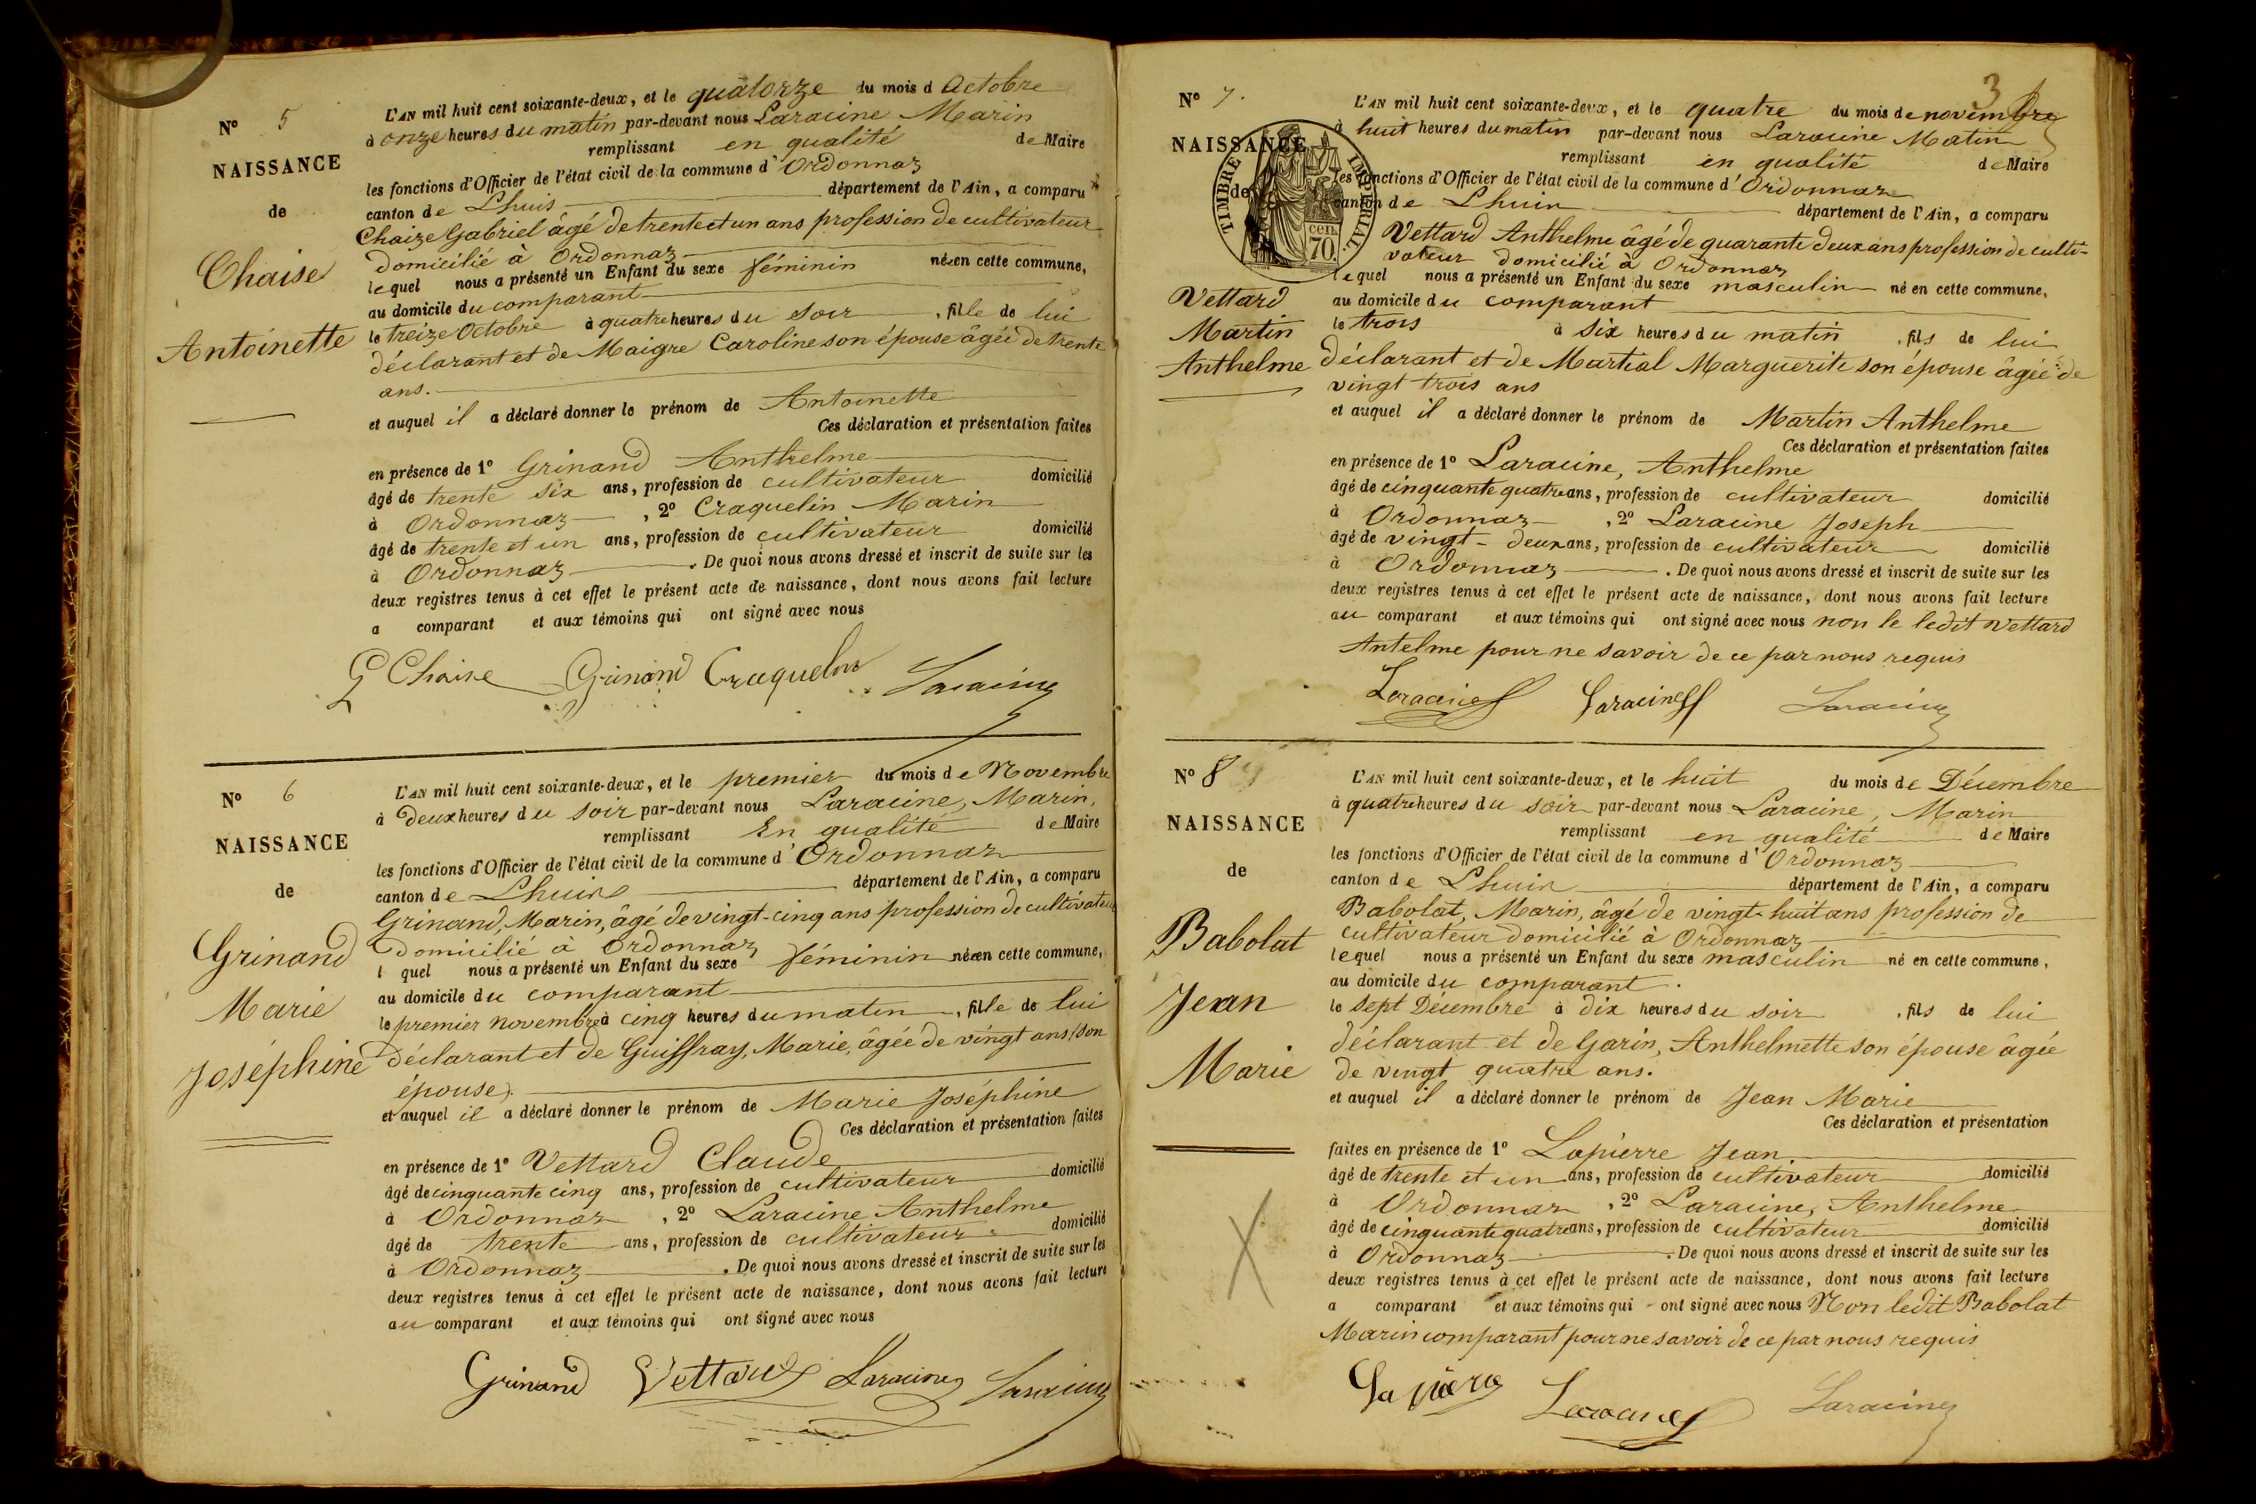 N° 5
NAISSANCE
de
Chaise
Antoinette
L'AN mil huit cent soixante-deux, et le quatorze du mois d Octobre
à onze heures du matin par-devant nous Laracine Marin
remplissant en qualité de Maire
les fonctions d'Officier de l'état civil de la commune d' Ordonnaz
canton de Lhuis département de l'Ain, a comparu
Chaize Gabriel âgé de trente et un ans profession de cultivateur
domicilié à Ordonnaz
lequel nous a présenté un Enfant du sexe féminin née en cette commune,
au domicile du comparant
le treize Octobre à quatre heures du soir , fille de lui
déclarant et de Maigre Caroline son épouse âgée de trente
ans.
et auquel il a déclaré donner le prénom de Antoinette
Ces déclaration et présentation faites
en présence de 1° Grinand Anthelme
âgé de trente six ans, profession de cultivateur domicilié
à Ordonnaz , 2° Craquelin Marin
âgé de trente et un ans, profession de cultivateur domicilié
à Ordonnaz . De quoi nous avons dressé et inscrit de suite sur les
deux registres tenus à cet effet le présent acte de naissance, dont nous avons fait lecture
a comparant et aux témoins qui ont signé avec nous
G Chaise Grinand Craquelin Laracine
N° 6
NAISSANCE
de
Grinand
Marie
Joséphine
L'AN mil huit cent soixante-deux, et le premier du mois de Novembre
à deux heures du soir par-devant nous Laracine, Marin,
remplissant En qualité de Maire
les fonctions d'Officier de l'état civil de la commune d' Ordonnaz
canton de Lhuis département de l'Ain, a comparu
Grinand, Marin, âgé de vingt-cinq ans profession de cultivateur
domicilié à Ordonnaz
l quel nous a présenté un Enfant du sexe féminin née en cette commune,
au domicile du comparant
le premier novembre à cinq heures du matin , fille de lui
déclarant et de Guiffray, Marie, âgée de vingt ans (son
épouse).
et auquel il a déclaré donner le prénom de Marie Joséphine
Ces déclaration et présentation faites
en présence de 1° Vettard Claude
âgé de cinquante cinq ans, profession de cultivateur domicilié
à Ordonnaz , 2° Laracine Anthelme
âgé de trente ans, profession de cultivateur domicilié
à Ordonnaz . De quoi nous avons dressé et inscrit de suite sur les
deux registres tenus à cet effet le présent acte de naissance, dont nous avons fait lecture
au comparant et aux témoins qui ont signé avec nous
Grinand Vettard Laracine Laracine
3
N° 7.
NAISSANCE
de
TIMBRE IMPERIAL
70. cen.
Vettard
Martin
Anthelme
L'AN mil huit cent soixante-deux, et le quatre du mois de novembre
à huit heures du matin par-devant nous Laracine Matin
remplissant en qualité de Maire
les fonctions d'Officier de l'état civil de la commune d' Ordonnaz
canton de Lhuis département de l'Ain, a comparu
Vettard Anthelme âgé de quarante deux ans profession de culti-
vateur domicilié à Ordonnaz
lequel nous a présenté un Enfant du sexe masculin né en cette commune,
au domicile du comparant
le trois à six heures du matin , fils de lui
déclarant et de Martial Marguerite son épouse âgée de
vingt trois ans
et auquel il a déclaré donner le prénom de Martin Anthelme
Ces déclaration et présentation faites
en présence de 1° Laracine, Anthelme
âgé de cinquante quatre ans, profession de cultivateur domicilié
à Ordonnaz , 2° Laracine Joseph
âgé de vingt-deux ans, profession de cultivateur domicilié
à Ordonnaz . De quoi nous avons dressé et inscrit de suite sur les
deux registres tenus à cet effet le présent acte de naissance, dont nous avons fait lecture
au comparant et aux témoins qui ont signé avec nous non le ledit Vettard
Antelme pour ne savoir de ce par nous requis
Laracine Laracine Laracine
N° 8
NAISSANCE
de
Babolat
Jean
Marie
L'AN mil huit cent soixante-deux, et le huit du mois de Décembre
à quatre heures du soir par-devant nous Laracine, Marin
remplissant en qualité de Maire
les fonctions d'Officier de l'état civil de la commune d' Ordonnaz
canton de Lhuis département de l'Ain, a comparu
Babolat, Marin, âgé de vingt-huit ans profession de
cultivateur domicilié à Ordonnaz
lequel nous a présenté un Enfant du sexe masculin né en cette commune,
au domicile du comparant.
le sept Décembre à dix heures du soir , fils de lui
déclarant et de Garin, Anthelmette son épouse âgée
de vingt quatre ans.
et auquel il a déclaré donner le prénom de Jean Marie
Ces déclaration et présentation
faites en présence de 1° Lapierre Jean
âgé de trente et un ans, profession de cultivateur domicilié
à Ordonnaz , 2° Laracine, Anthelme
âgé de cinquante quatre ans, profession de cultivateur domicilié
à Ordonnaz . De quoi nous avons dressé et inscrit de suite sur les
deux registres tenus à cet effet le présent acte de naissance, dont nous avons fait lecture
a comparant et aux témoins qui ont signé avec nous Non ledit Babolat
Marin comparant pour ne savoir de ce par nous requis
Lapierre Laracine Laracine